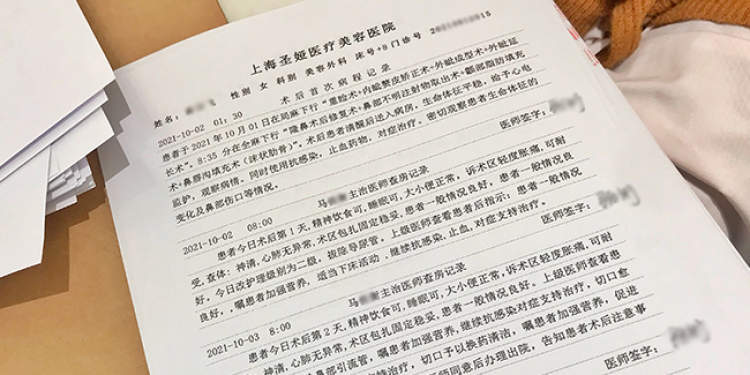 上海圣娅医疗美容医院
姓名: 性别 女 科别 美容外科 床号+8 门诊号 15
术后首次病程记录
2021-10-02 01:30
患者于2021年10月01日在局麻下行“重睑术+内眦赘皮矫正术+外眦成型术+外眦延
长术”。8:35分在全麻下行“隆鼻术后修复术+鼻部不明注射物取出术+颞部脂肪填充
术+鼻唇沟填充术(床状肋骨)”。术后患者清醒后送入病房,生命体征平稳,给予心电
监护,观察病情,同时使用抗感染,止血药物,对症治疗。密切观察患者生命体征的
变化及鼻部伤口等情况。
医师签字:
2021-10-02 08:00 马 主治医师查房记录
患者今日术后第1天,精神饮食可,睡眠可,大小便正常,诉术区轻度胀痛,可耐
受,查体:神清,心肺无异常,术区包扎固定稳妥,患者一般情况良好,患者一般情况良
好。今日改护理级别为二级。拔除导尿管。上级医师查看患者后指示:患者一般情况
良好,,嘱患者加强营养,适当下床活动,继续抗感染,止血,对症支持治疗。
医师签字:
2021-10-03 8:00 马 主治医师查房记录
患者今日术后第2天,精神饮食可,睡眠可,大小便正常,诉术区轻度胀痛,可耐
神清,心肺无异常,术区包扎固定稳妥,患者一般情况良好。上级医师查看患
鼻部引流管,嘱患者加强营养,继续抗感染对症支持治疗,切口愈
支持治疗,切口予以换药清洁,嘱患者加强营养,促进
师同意后办理出院,告知患者术后注意事
医师签字: